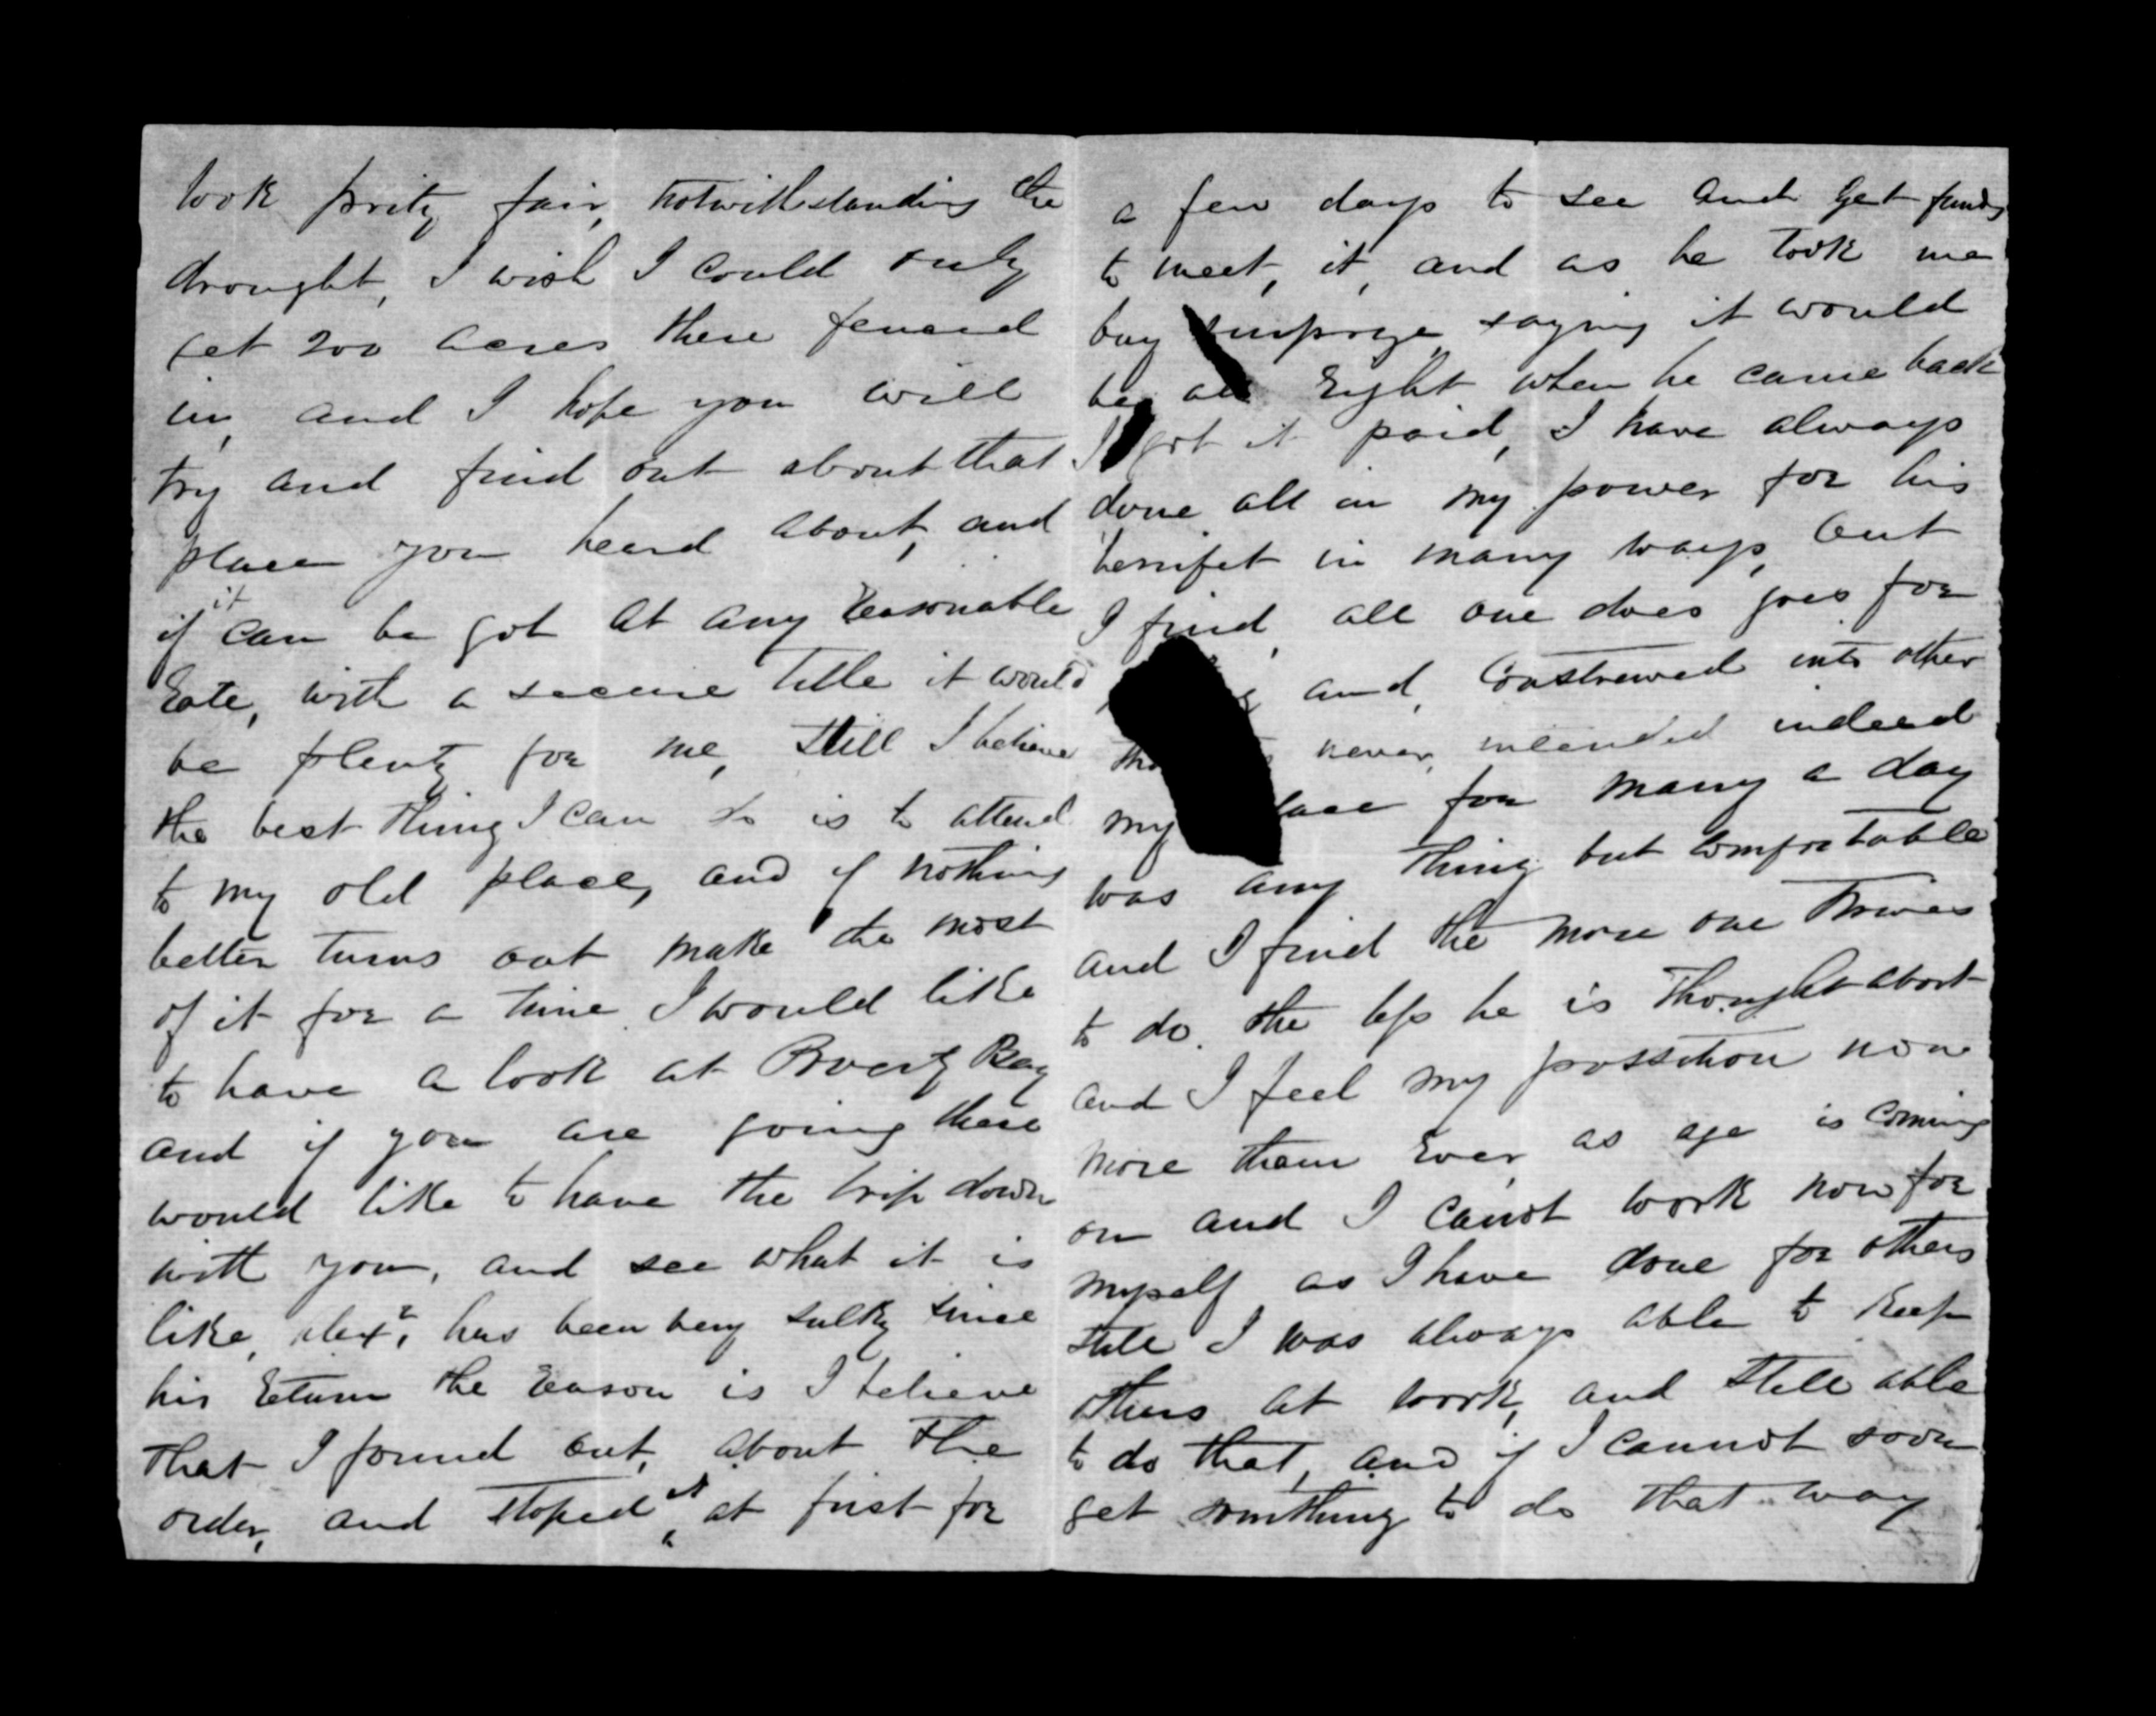 look prity fair, notwithstanding the
drought, I wish I could only
get 200 acres there fenced
in, and I hope you will
try and find out about that
place you heard about, and
if it can be got at any reasonable
rate, with a secure title it would
be plenty for me, still I believe
the best thing I can do is to attend
to my old place, and if nothing
better turns out make the most
of it for a time I would like
to have a look at Poverty Bay
and if you are going there
would like to have the trip down
with you, and see what it is
like, Alexr, has been very sulky since
his return the reason is I believe
that I found out, about the
order, and stoped it at first for
a few days to see and get funds
to meet, it, and as he took me
by surprize, saying it would
be all right when he came back
I got it paid, I have always
done all in my power for his
bennifet in many ways, but
I find, all one does goes for
and, constrewed into other
never, intended indeed
my place for many a day
was any thing but comfortable
and I find the more one
to do, the less he is thought about
and I feel my possition now
more than ever, as age is coming
on and I canot work now for
myself as I have done for others
still I was always able to keep
others at work, and still able
to do that, and if I cannot soon
get somthing to do that way